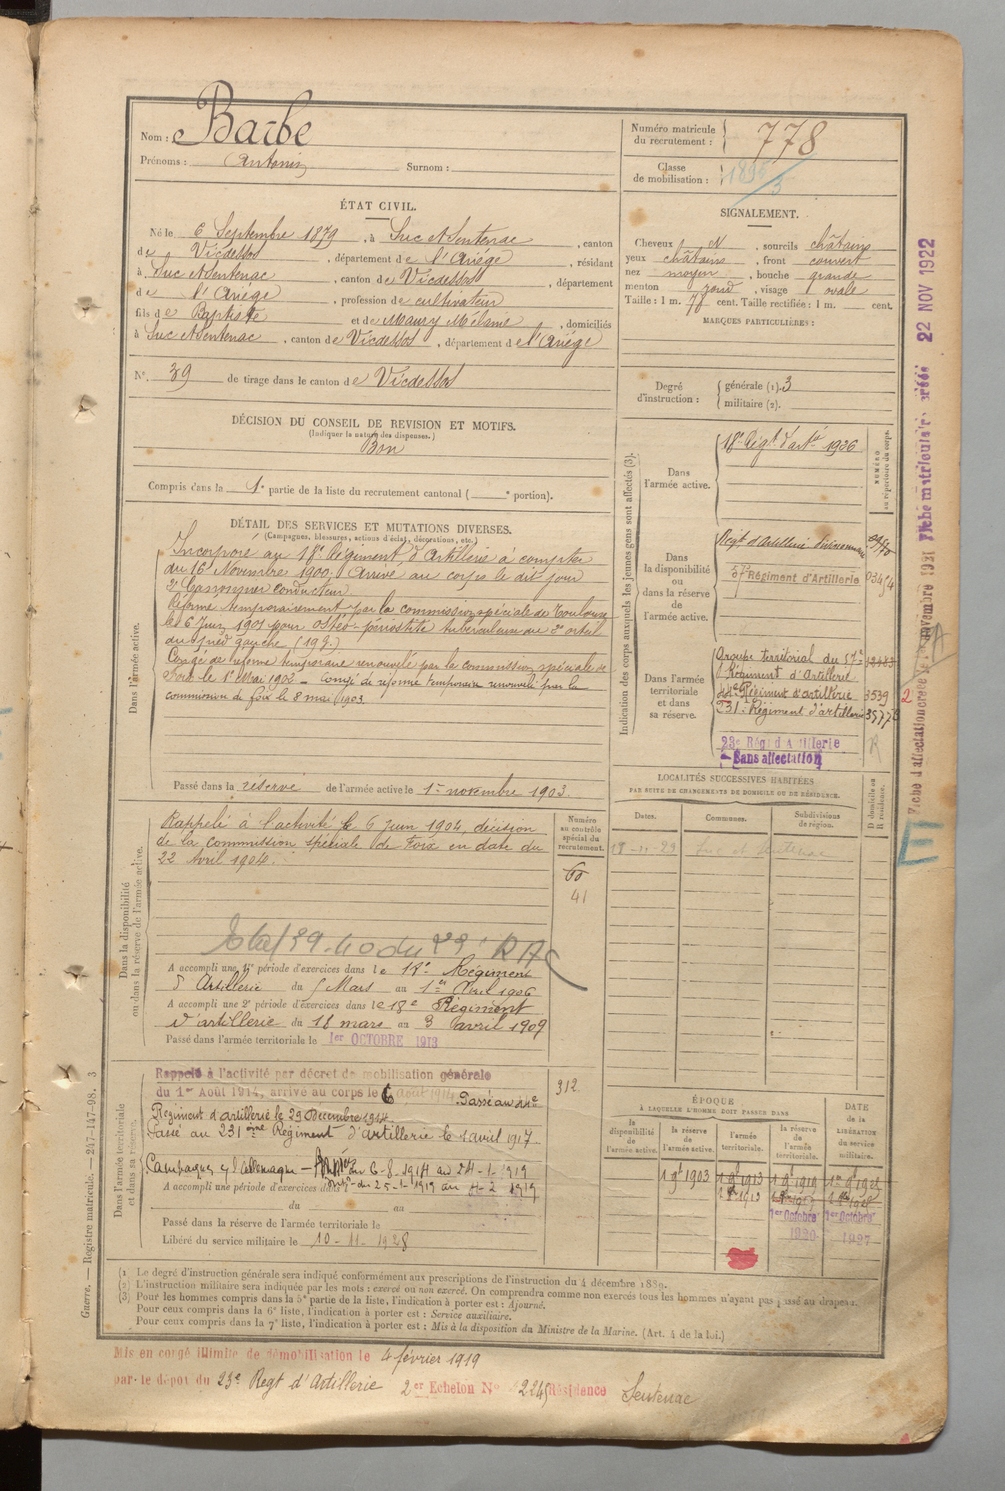 Nom : Barbe
Prénoms : Antonin Surnom :
Numéro matricule du recrutement : 778
Classe de mobilisation :
ÉTAT CIVIL.
Né le 6 Septembre 1879, à Suc et Sentenac, canton
de Vicdessos, département de l'Ariège, résidant
à Suc et Sentenac, canton de Vicdessos, département
de l'Ariège, profession de cultivateur
fils de Baptiste et de Maury Mélanie, domiciliés
à Suc et Sentenac, canton de Vicdessos, département de l'Ariège
N° 39 de tirage dans le canton de Vicdessos
SIGNALEMENT.
Cheveux N, sourcils châtains
yeux châtains, front couvert
nez moyen, bouche grande
menton rond, visage ovale
Taille : 1 m. 78 cent. Taille rectifiée : 1 m. cent.
MARQUES PARTICULIÈRES :
Degré d'instruction : générale (1). 3
militaire (2).
DÉCISION DU CONSEIL DE REVISION ET MOTIFS.
(Indiquer la nature des dispenses.)
Bon
Compris dans la 1e partie de la liste du recrutement cantonal ( portion).
DÉTAIL DES SERVICES ET MUTATIONS DIVERSES.
(Campagnes, blessures, actions d'éclat, décorations, etc.)
Dans l'armée active.
Incorporé au 18e Régiment d'Artillerie à compter
du 16 Novembre 1900. Arrivé au corps le dit jour
2e Canonnier conducteur.
Réformé temporairement par la commission spéciale de Toulouse
le 6 Juin 1901 pour ostéo-périostite tuberculeuse du 2e orteil
du pied gauche
Congé de réforme temporaire renouvelé par la commission spéciale de
Foix le 1er Mai 1902 – Congé de réforme temporaire renouvelé par la
commission de foix le 8 mai 1903.
Passé dans la réserve de l'armée active le 1er novembre 1903.
Dans la disponibilité ou dans la réserve de l'armée active.
Rappelé à l'activité le 6 juin 1904, décision
de la commission spéciale de Foix en date du
22 Avril 1904.
A accompli une 1re période d'exercices dans le 18e Régiment
d'Artillerie du 5 Mars au 1er Avril 1906
A accompli une 2e période d'exercices dans le 18e Régiment
d'artillerie du 18 mars au 3 avril 1909
Passé dans l'armée territoriale le 1er OCTOBRE 1913
Dans l'armée territoriale et dans sa réserve.
Rappelé à l'activité par décret de mobilisation générale
du 1er Août 1914, arrivé au corps le 6 août 1914. Passé au 44e
Régiment d'artillerie le 29 Décembre 1914
Passé au 231ème Régiment d'Artillerie le 1 avril 1917.
Campagnes c/ l'Allemagne – du 6-8-1914 au 24-1-1919
A accompli une période d'exercices dans du 25-1-1919 au 4-2-1919
du au
Passé dans la réserve de l'armée territoriale le
Libéré du service militaire le 10-11-1928
Numéro au contrôle spécial du recrutement.
60
41
312
Indication des corps auxquels les jeunes gens sont affectés (3).
Dans l'armée active.
18e Régt d'artie 1926
NUMÉRO au répertoire du corps.
Dans la disponibilité ou dans la réserve de l'armée active.
Régt d'Artillerie divisionnaire
57e Régiment d'Artillerie
Dans l'armée territoriale et dans sa réserve.
Groupe territorial du 57e
Régiment d'Artillerie
44e Régiment d'artillerie 3539
231e Régiment d'artillerie
23e Régt d'Artillerie
Sans affectation
LOCALITÉS SUCCESSIVES HABITÉES
PAR SUITE DE CHANGEMENTS DE DOMICILE OU DE RÉSIDENCE.
D domicile ou R résidence.
Dates. Communes. Subdivisions de région.
Suc et Sentenac
R
ÉPOQUE
À LAQUELLE L'HOMME DOIT PASSER DANS
la disponibilité de l'armée active. la réserve de l'armée active. l'armée territoriale. la réserve de l'armée territoriale.
DATE de la LIBÉRATION du service militaire.
1 9bre 1903 1 9bre 1913 1 9bre 1919
1er Octobre 1920 1er Octobre 1927
(1) Le degré d'instruction générale sera indiqué conformément aux prescriptions de l'instruction du 4 décembre 1889.
(2) L'instruction militaire sera indiquée par les mots : exercé ou non exercé. On comprendra comme non exercés tous les hommes n'ayant pas passé au drapeau.
(3) Pour les hommes compris dans la 5e partie de la liste, l'indication à porter est : Ajourné.
Pour ceux compris dans la 6e liste, l'indication à porter est : Service auxiliaire.
Pour ceux compris dans la 7e liste, l'indication à porter est : Mis à la disposition du Ministre de la Marine. (Art. 4 de la loi.)
Mis en congé illimité de démobilisation le 4 février 1919
par le dépôt du 23e Regt d'Artillerie 2er Echelon N° 2245 Résidence Sentenac
Guerre. — Registre matricule. — 247-147-98. 3
Fiche matriculaire créée 22 NOV 1922